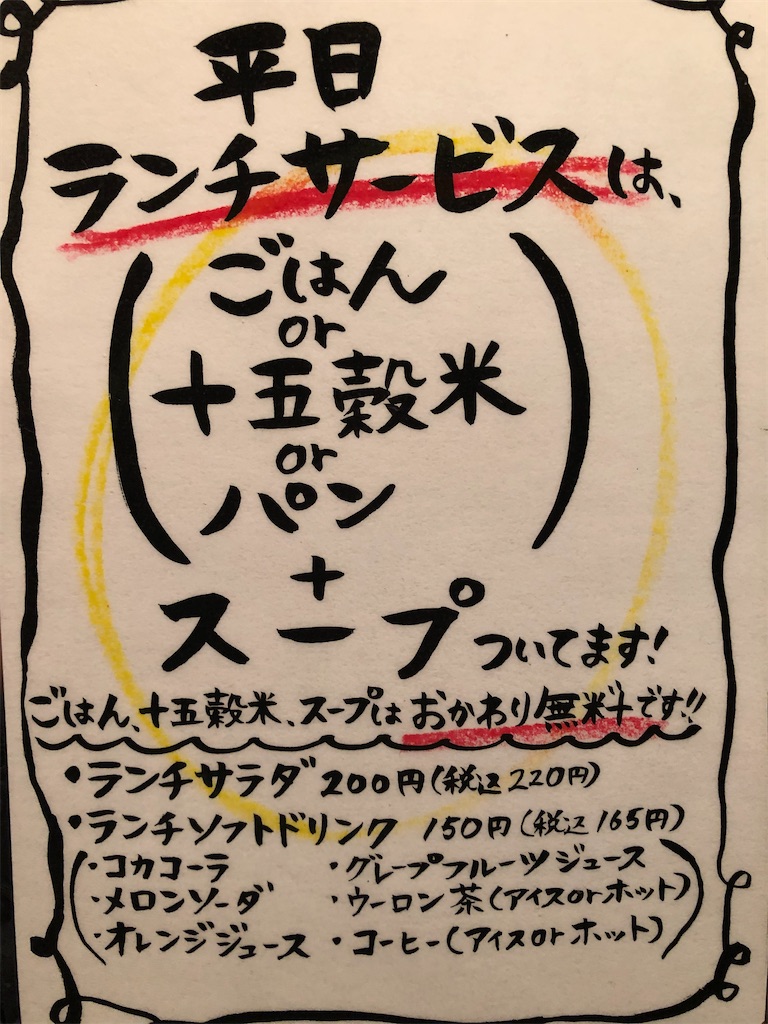 平日
ランチサービスは、
(ごはん
or
十五穀米
or
パン)
+
スープついてます!
ごはん、十五穀米、スープはおかわり無料です!!
・ランチサラダ 200円(税込220円)
・ランチソフトドリンク 150円(税込165円)
(・コカコーラ ・グレープフルーツジュース
・メロンソーダ ・ウーロン茶(アイスorホット)
・オレンジジュース ・コーヒー(アイスorホット))